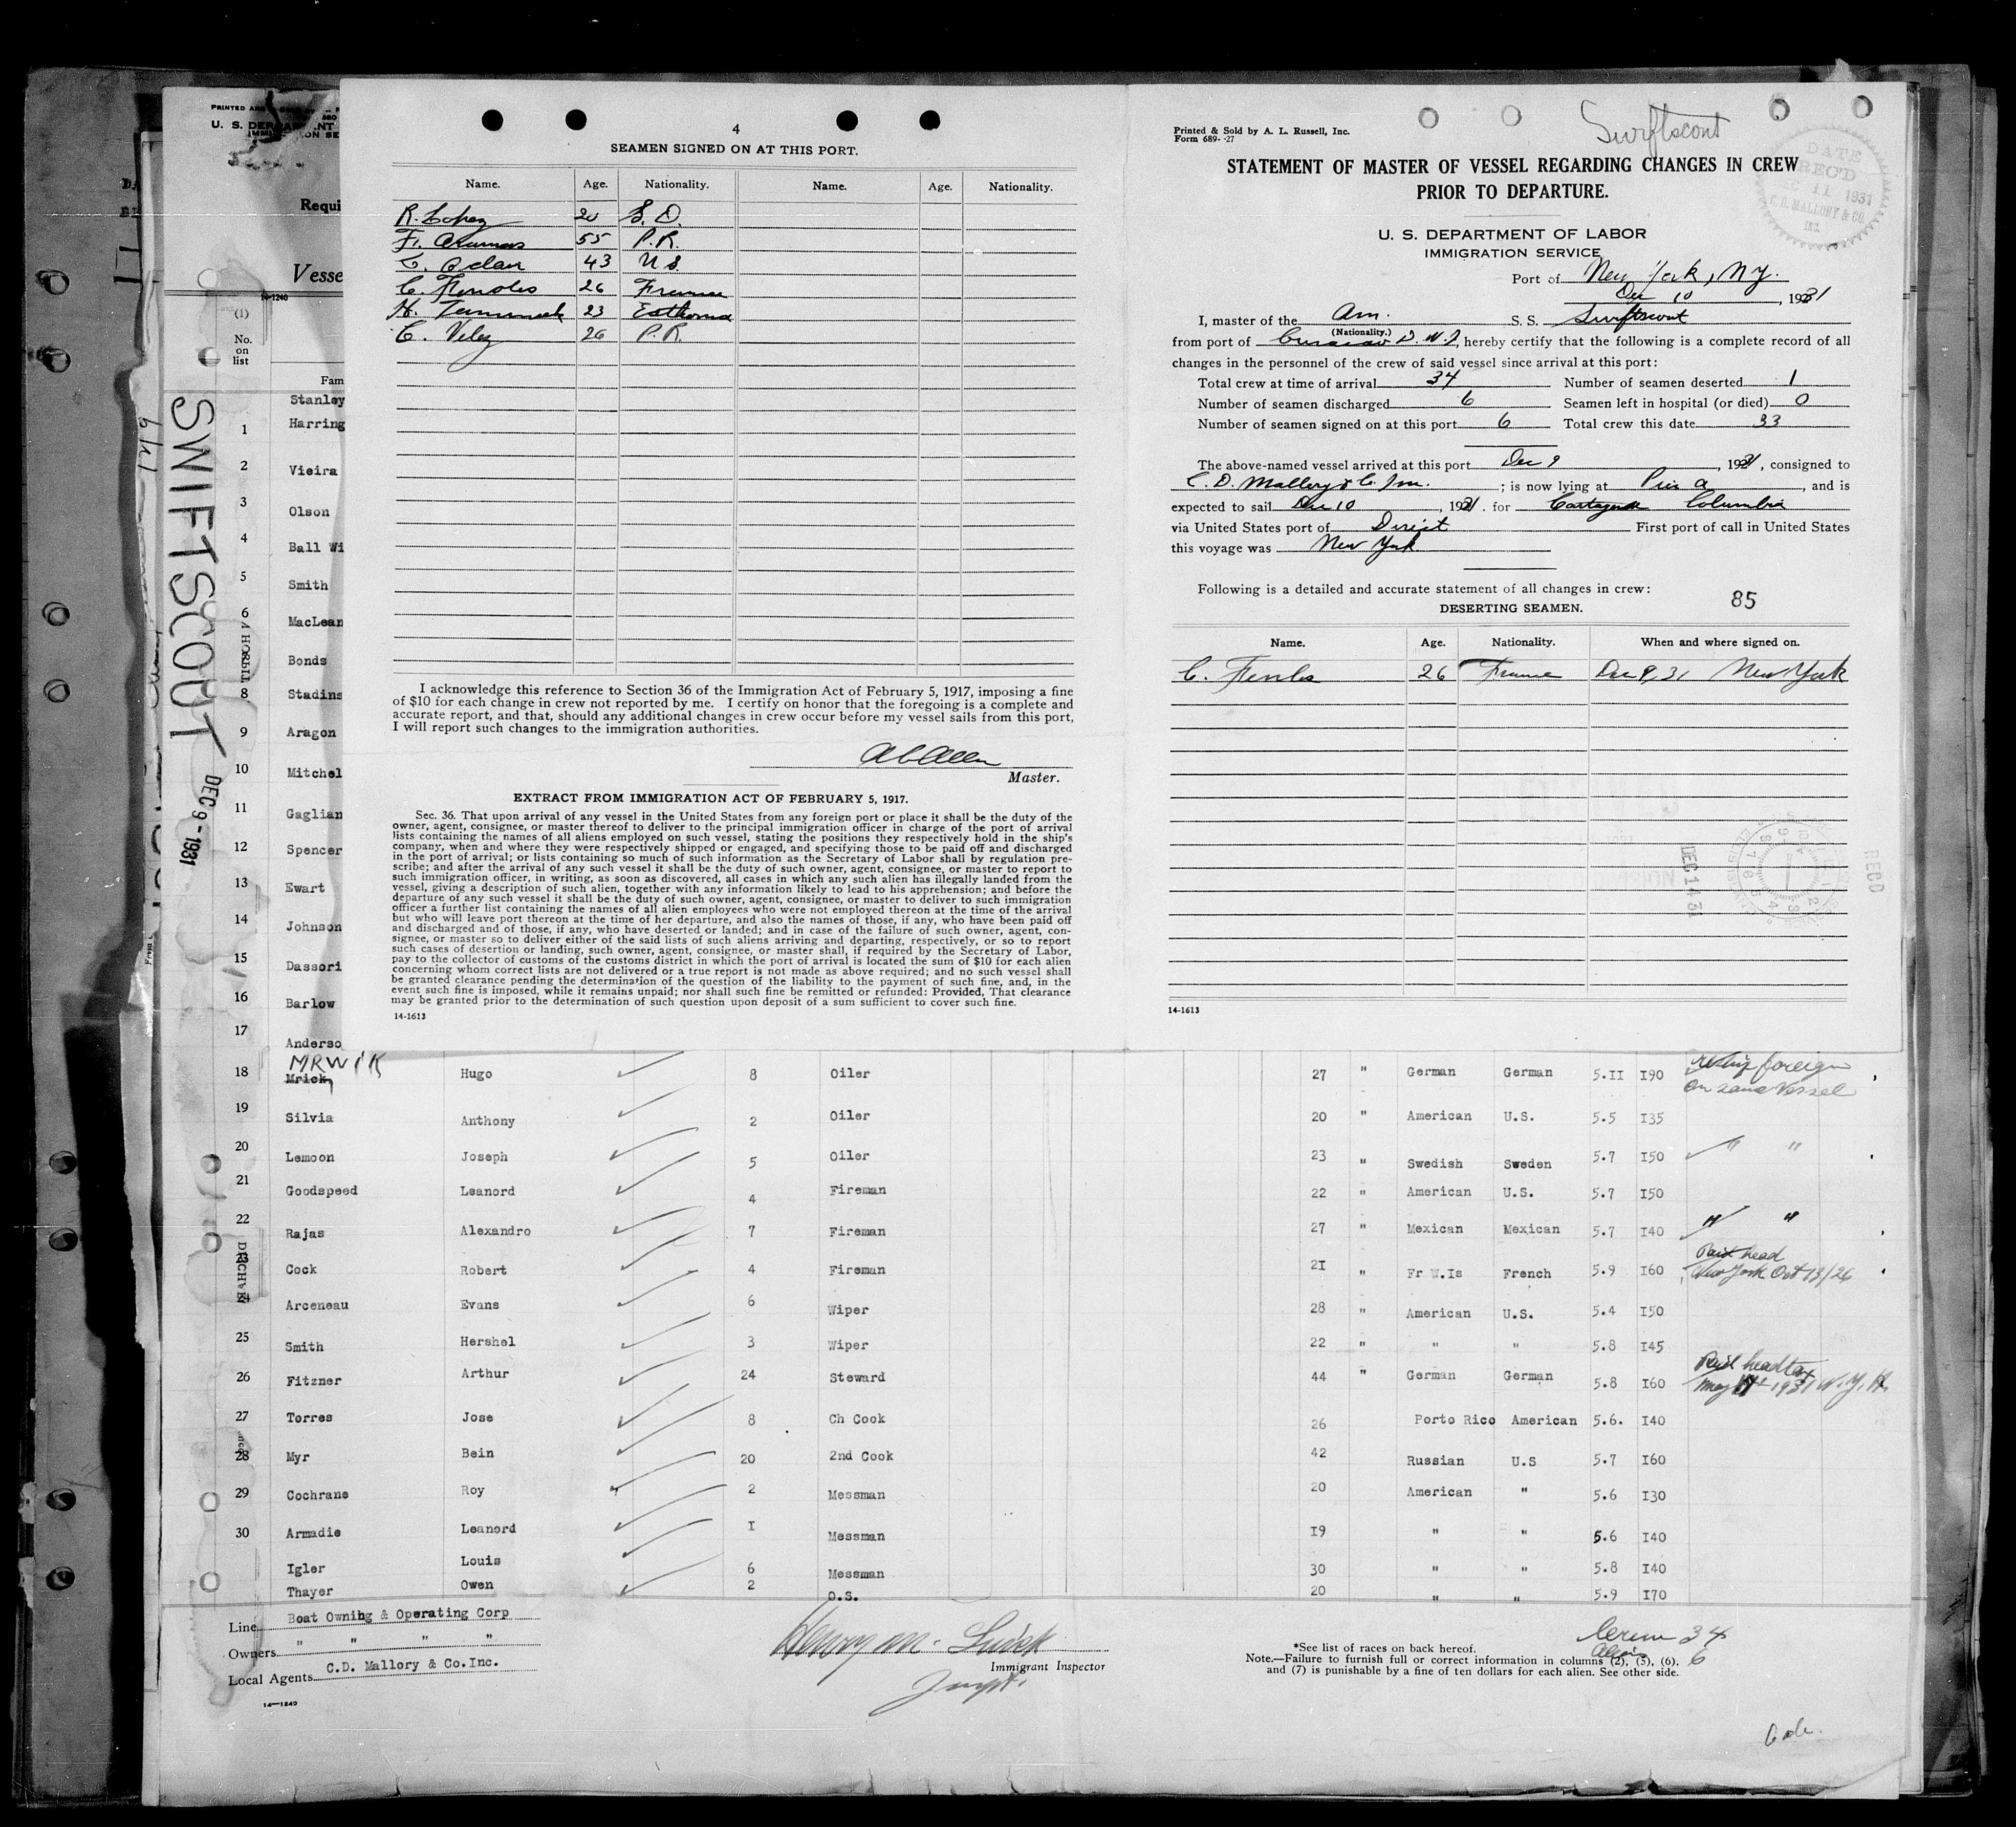 4
SEAMEN SIGNED ON AT THIS PORT.
Name. Age. Nationality. Name. Age. Nationality.
R. Lopez 20 S. D.
F. 55 P.R.
43 U S.
C. 26 France
H. 23 Esthonia
C. Velez 26 P.R.
I acknowledge this reference to Section 36 of the Immigration Act of February 5, 1917, imposing a fine
of $10 for each change in crew not reported by me. I certify on honor that the foregoing is a complete and
accurate report, and that, should any additional changes in crew occur before my vessel sails from this port,
I will report such changes to the immigration authorities.
Master.
EXTRACT FROM IMMIGRATION ACT OF FEBRUARY 5, 1917.
Sec. 36. That upon arrival of any vessel in the United States from any foreign port or place it shall be the duty of the
owner, agent, consignee, or master thereof to deliver to the principal immigration officer in charge of the port of arrival
lists containing the names of all aliens employed on such vessel, stating the positions they respectively hold in the ship's
company, when and where they were respectively shipped or engaged, and specifying those to be paid off and discharged
in the port of arrival; or lists containing so much of such information as the Secretary of Labor shall by regulation pre-
scribe; and after the arrival of any such vessel it shall be the duty of such owner, agent, consignee, or master to report to
such immigration officer, in writing, as soon as discovered, all cases in which any such alien has illegally landed from the
vessel, giving a description of such alien, together with any information likely to lead to his apprehension; and before the
departure of any such vessel it shall be the duty of such owner, agent, consignee, or master to deliver to such immigration
officer a further list containing the names of all alien employees who were not employed thereon at the time of the arrival
but who will leave port thereon at the time of her departure, and also the names of those, if any, who have been paid off
and discharged and of those, if any, who have deserted or landed; and in case of the failure of such owner, agent, con-
signee, or master so to deliver either of the said lists of such aliens arriving and departing, respectively, or so to report
such cases of desertion or landing, such owner, agent, consignee, or master shall, if required by the Secretary of Labor,
pay to the collector of customs of the customs district in which the port of arrival is located the sum of $10 for each alien
concerning whom correct lists are not delivered or a true report is not made as above required; and no such vessel shall
be granted clearance pending the determination of the question of the liability to the payment of such fine, and, in the
event such fine is imposed, while it remains unpaid; nor shall such fine be remitted or refunded: Provided, That clearance
may be granted prior to the determination of such question upon deposit of a sum sufficient to cover such fine.
14-1613
Swiftscout
Printed & Sold by A. L. Russell, Inc.
Form 689- -27
DATE
REC'D
DEC 11 1931
C.D. MALLORY & CO.
INC.
STATEMENT OF MASTER OF VESSEL REGARDING CHANGES IN CREW
PRIOR TO DEPARTURE.
U. S. DEPARTMENT OF LABOR
IMMIGRATION SERVICE
Port of New York, N.Y.
Dec 10, 1931
I, master of the Am. S. S. Swiftscout
(Nationality.)
from port of Curacao D. W. I, hereby certify that the following is a complete record of all
changes in the personnel of the crew of said vessel since arrival at this port:
Total crew at time of arrival 34 Number of seamen deserted 1
Number of seamen discharged 6 Seamen left in hospital (or died) 0
Number of seamen signed on at this port 6 Total crew this date 33
The above-named vessel arrived at this port Dec 9, 1931, consigned to
C. D. Mallory & Co. Inc. ; is now lying at Pier A, and is
expected to sail Dec 10, 1931. for Cartagena Columbia
via United States port of Direct First port of call in United States
this voyage was New York
Following is a detailed and accurate statement of all changes in crew:
85
DESERTING SEAMEN.
Name. Age. Nationality. When and where signed on.
C. 26 France Dec 9, 31 New York
DEC 14 31
RECD
14-1613
U. S. DEPARTMENT
Requi
Vesse
14-1240
(1)
No.
on
list
Fam
SWIFTSCOUT
DEC 9 - 1931
Stanley
1 Harring
2 Vieira
3 Olson
4 Ball Wi
5 Smith
6 MacLean
Bonds
8 Stadins
9 Aragon
10 Mitchel
11 Gaglian
12 Spencer
13 Ewart
14 Johnson
15 Dassori
16 Barlow
17 Anderso
MRWIK
18 Mrick Hugo 8 Oiler 27 " German German 5.II I90 foreign
on same vessel
19 Silvia Anthony 2 Oiler 20 " American U.S. 5.5 I35
20 Lemoon Joseph 5 Oiler 23 " Swedish Sweden 5.7 I50 " "
21 Goodspeed Leanord 4 Fireman 22 " American U.S. 5.7 I50
22 Rajas Alexandro 7 Fireman 27 " Mexican Mexican 5.7 I40 " "
23 Cock Robert 4 Fireman 2I " Fr W.Is French 5.9 I60 Paid head
New York Oct 13/26
24 Arceneau Evans 6 Wiper 28 " American U.S. 5.4 I50
25 Smith Hershel 3 Wiper 22 " " " 5.8 I45
26 Fitzner Arthur 24 Steward 44 " German German 5.8 I60 Paid head tax
May 1931 N.Y.
27 Torres Jose 8 Ch Cook 26 Porto Rico American 5.6. I40
28 Myr Bein 20 2nd Cook 42 Russian U.S 5.7 I60
29 Cochrane Roy 2 Messman 20 American " 5.6 I30
30 Armadie Leanord I Messman I9 " " 5.6 I40
Igler Louis 6 Messman 30 " " 5.8 I40
Thayer Owen 2 O.S. 20 " " 5.9 I70
Line Boat Owning & Operating Corp
Owners " " " "
Local Agents C.D. Mallory & Co.Inc.
14—1240
Henry M.
Immigrant Inspector
*See list of races on back hereof.
Note.—Failure to furnish full or correct information in columns (2), (5), (6),
and (7) is punishable by a fine of ten dollars for each alien. See other side.
34
6